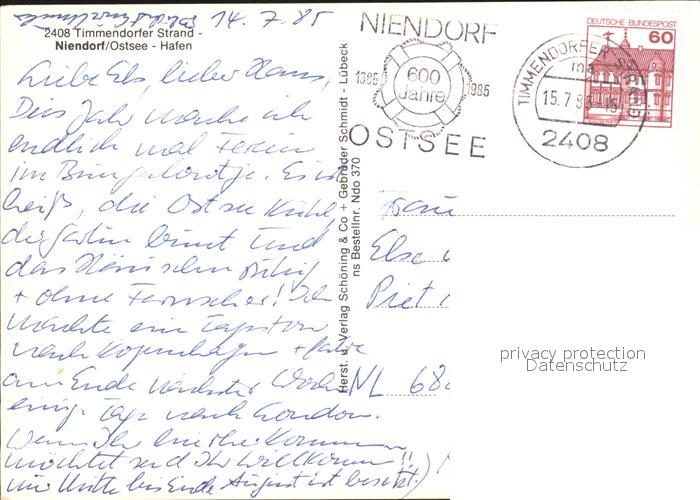 14. 7. 85
2408 Timmendorfer Strand -
Niendorf/Ostsee - Hafen
Liebe Els, lieber Hans,
Dies Jahr mache ich
endlich mal Ferien
im Bungalowtje. Es ist
heiß, die Ostsee kühl,
der Garten bunt und
das Häuschen ruhig
+ ohne Fernseher! Ich
machte eine
nach Kopenhagen + fahre
am Ende nächster Woche
einige Tage nach London.
Wenn Ihr hierher kommen
möchtet seid Ihr willkommen!!
(nur Mitte bis Ende August ist besetzt.)
Herst. u. Verlag Schöning & Co + Gebrüder Schmidt - Lübeck
ns Bestellnr. Ndo 370
NIENDORF
1385 600 Jahre 1985
OSTSEE
TIMMENDORFER STRAND
ma
15.7.85-15
2408
DEUTSCHE BUNDESPOST
60
Frau
Else
Piet
NL 68
privacy protection
Datenschutz